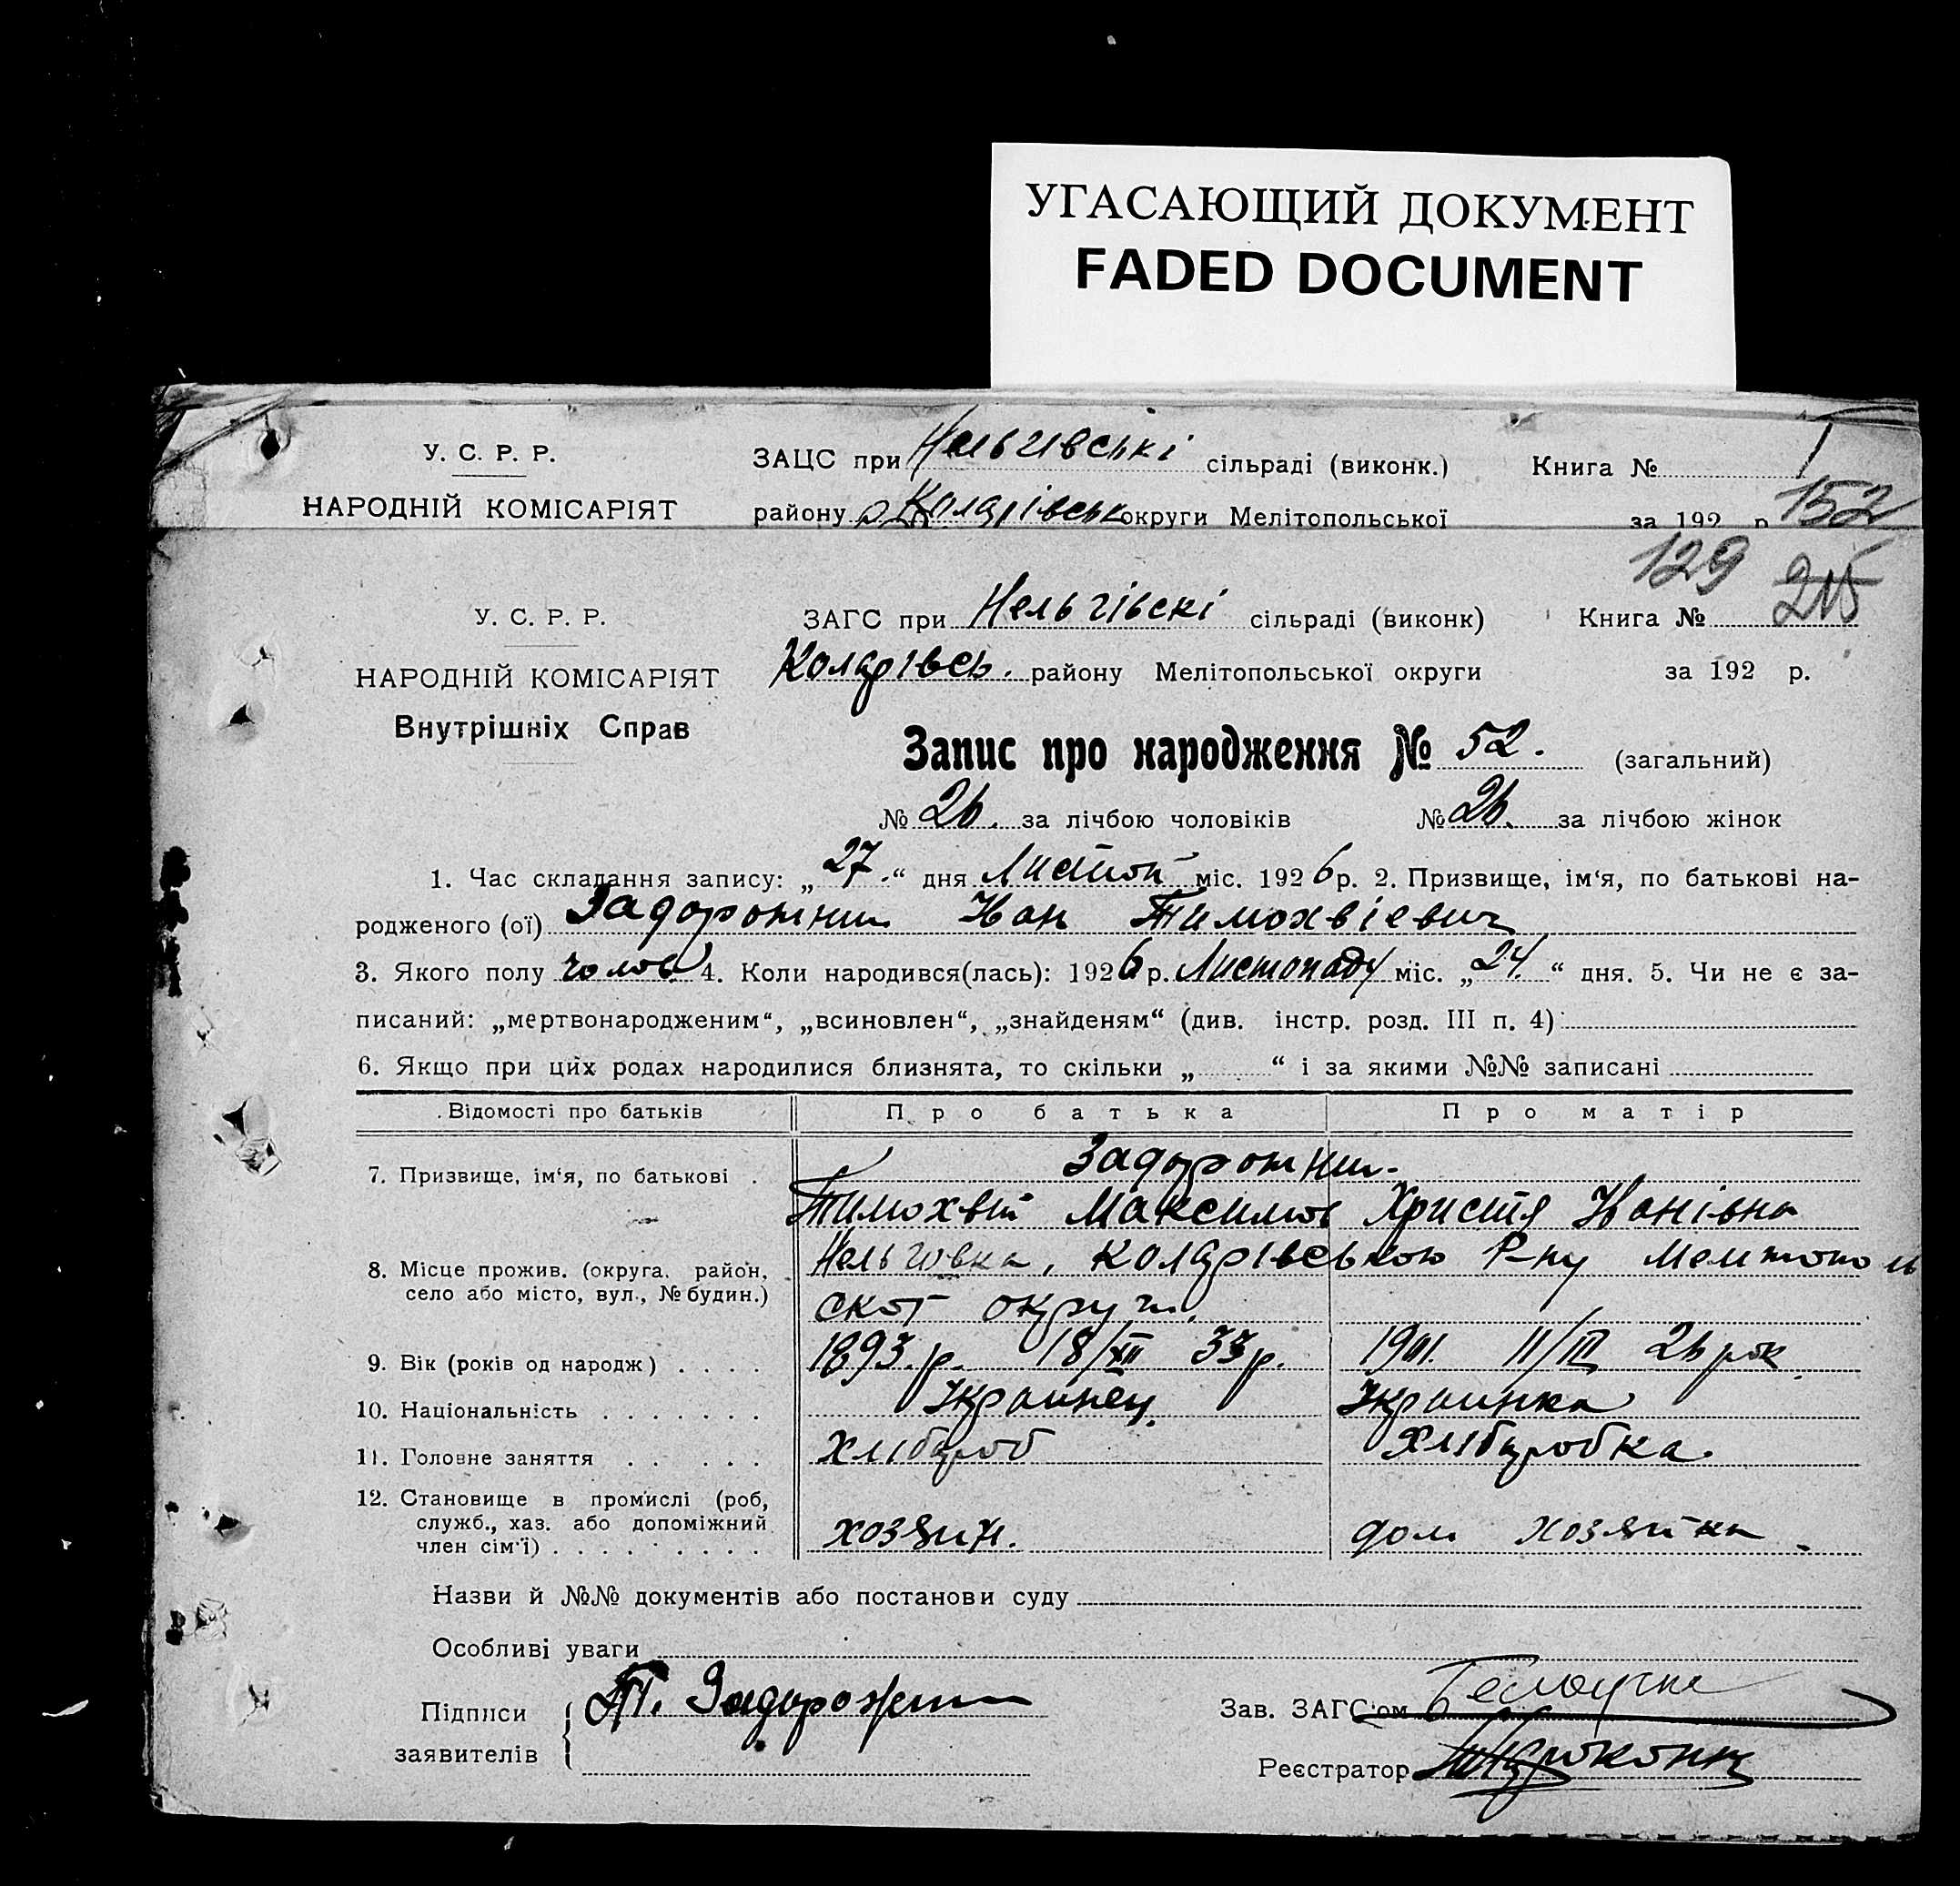 УГАСАЮЩИЙ ДОКУМЕНТ
FADED DOCUMENT
У. С. Р. Р. ЗАЦС при Нельгивські сільраді (виконк.) Книга № 1
НАРОДНІЙ КОМІСАРІЯТ району Коларівськ округи Мелітопольської за 192 р 152
129 215
У. С. Р. Р. ЗАГС при Нельгівскі сільраді (виконк) Книга №
НАРОДНІЙ КОМІСАРІЯТ Коларівсь. району Мелітопольської округи за 192 р.
Внутрішніх Справ
Запис про народження № 52. (загальний)
№ 26. за лічбою чоловіків № 26. за лічбою жінок
1. Час складання запису: „27.“ дня Листоп міс. 1926 р. 2. Призвище, ім‘я, по батькові на-
родженого (ої) Задорожний Иван Тимохвіевич
3. Якого полу чолов. 4. Коли народився(лась): 1926 р. Листопаду міс. „24.“ дня. 5. Чи не є за-
писаний: „мертвонародженим“, „всиновлен“, „знайденям“ (див. інстр. розд. III п. 4)
6. Якщо при цих родах народилися близнята, то скільки „ “ і за якими №№ записані
Відомості про батьків Про батька Про матір
7. Призвище, ім‘я, по батькові . Задорожнии.
Тимохвій Максимов Христя Иванівна
8. Місце прожив. (округа, район, Нельговка, Коларівською Р-ну Мелитополь
село або місто, вул., № будин.) ской округи.
9. Вік (років од народж) . . . . 1893.р. 18/XII 33 р. 1901. II/III 26 рок.
10. Національність . . . . . . . Украинец. Украинка
11. Головне заняття . . . . . . Хлібороб Хліборобка.
12. Становище в промислі (роб,
служб., хаз. або допоміжний хозяин. дом хозяйка.
член сім‘ї) . . . . . . . . .
Назви й №№ документів або постанови суду
Особливі уваги
Підписи Т. Задорожний Зав. ЗАГС‘ом
заявителів
Реєстратор